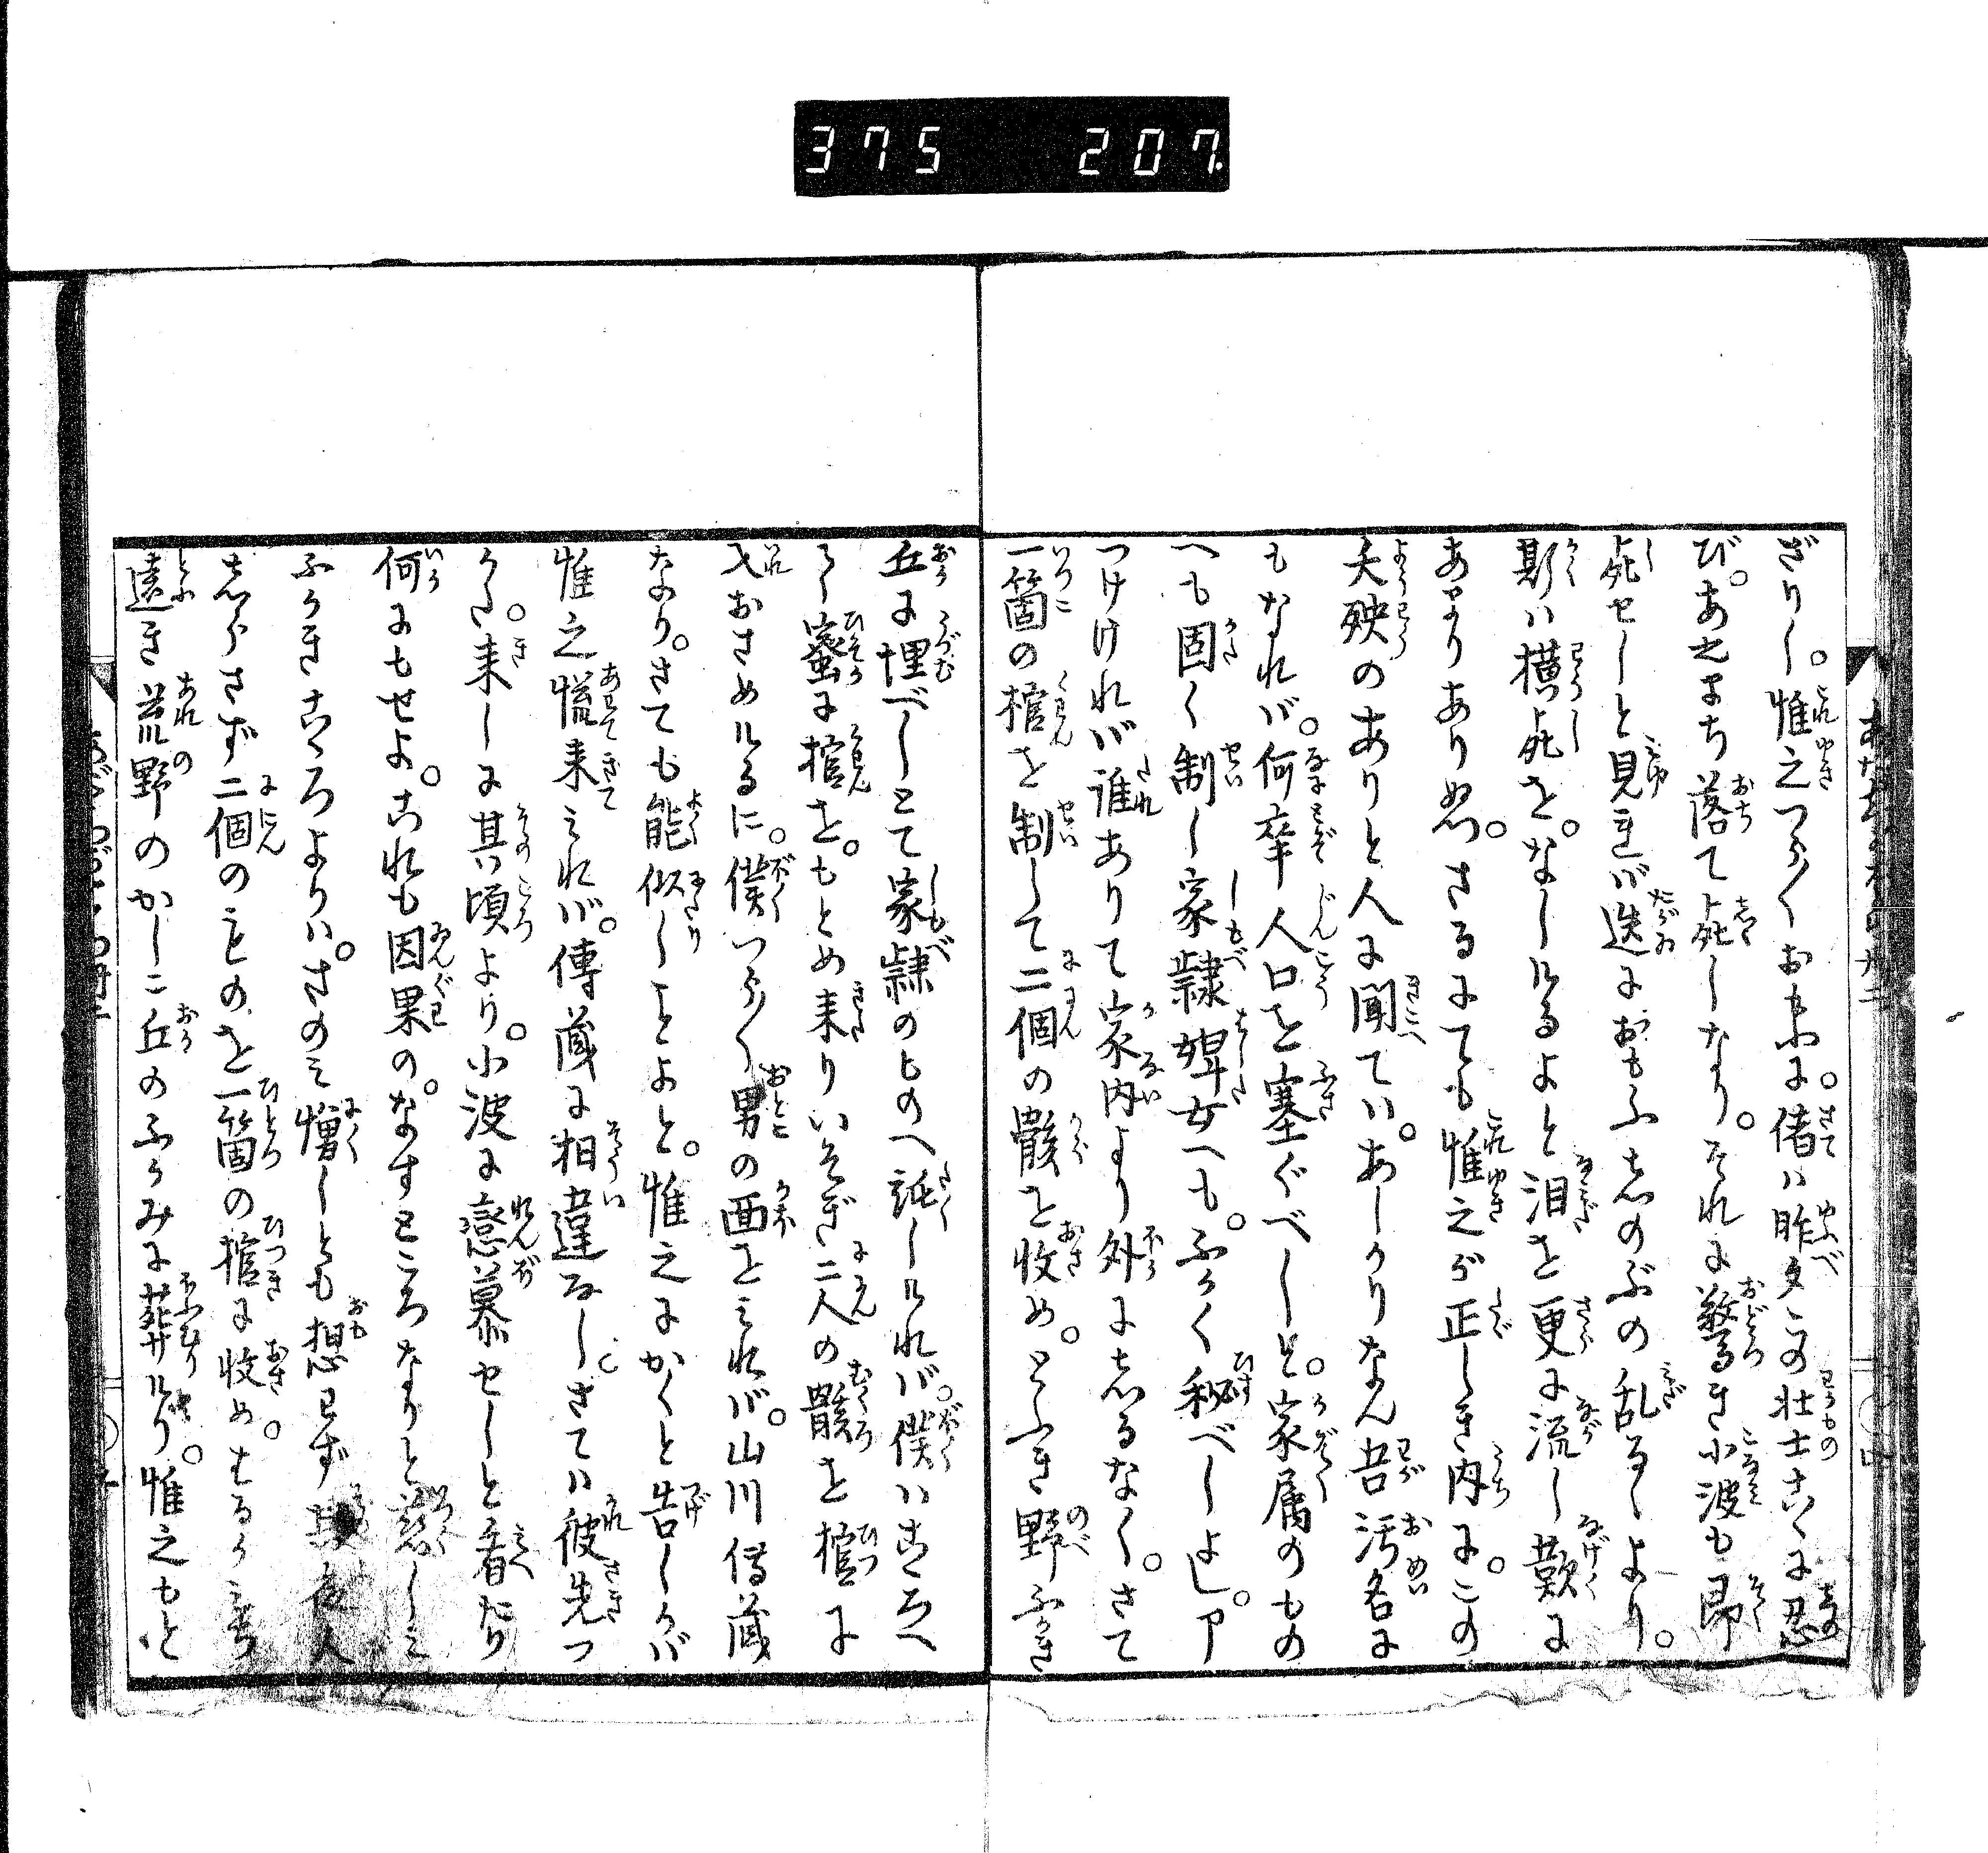 375 207.
ざりし。惟之つら〳〵おもふに。偖は昨夕この壮士こゝに忍
び。あやまち落て死しなり。それに驚き小波も即
死せしと見えば迭におもふしのぶの乱るゝより。
斯は横死を。なしけるよと泪を更に流し歎に
あまりありぬ。さるにても惟之が正しき内に。この
夭殃のありと人に聞ては。あしかりなん吾汚名に
もなれば。何卒人口を塞ぐべしと。家属のもの
へも固く制し家隷婢女へも。ふかく秘べしよし申
つけければ誰ありて家内より外にしるなく。さて
一箇の棺を制して二個の骸を收め。とふき野ふかき
丘に埋べしとて家隷のものへ託しければ。僕はこゝろへ
て蜜に棺を。もとめ来りいそぎ二人の骸を棺に
入おさめけるに。僕つら〳〵男の面をみれば。山川傳蔵
なり。さても能似しことよと。惟之にかくと告しかば
惟之慌来みれば。傳蔵に相違なし。さては彼先つ
かた。来しに其頃より。小波に戀慕せしと看たり
何にもせよ。これも因果の。なすところなりと慈しみ
ふかきこゝろよりは。さのみ憎しとも想わず其夜人
しらさず二個のものを一箇の棺に收め。はるか
遠き荒野のかしこ丘のふかみに葬けり。惟之もと